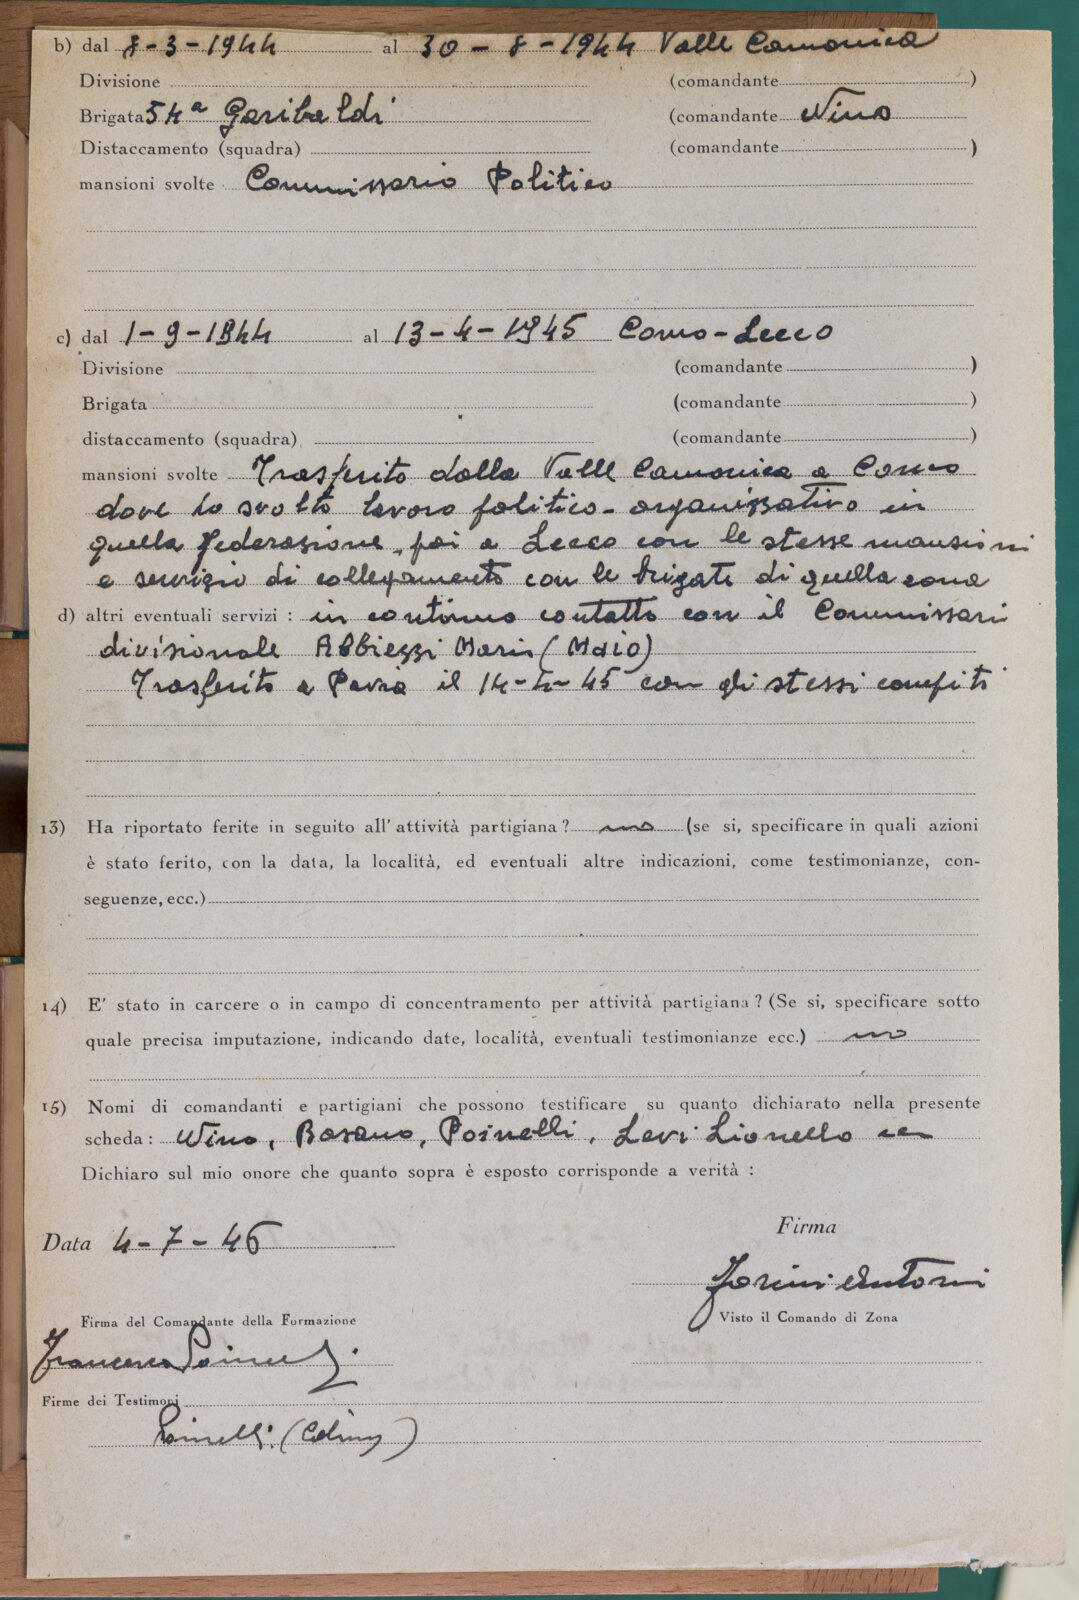 b) dal 8-3-1944 al 30-8-1944 Valle Camonica
Divisione (comandante )
Brigata 54ª Garibaldi (comandante Nino
Distaccamento (squadra) (comandante )
mansioni svolte Commissario Politico
c) dal 1-9-1944 al 13-4-1945 Como-Lecco
Divisione (comandante )
Brigata (comandante )
distaccamento (squadra) (comandante )
mansioni svolte Trasferito dalla Valle Camonica a Como
dove ho svolto lavoro politico-organizzativo in
quella Federazione, poi a Lecco con le stesse mansioni
e servizio di collegamento con le brigate di quella zona
d) altri eventuali servizi : in continuo contatto con il Commissario
divisionale Abbiezzi Mario (Maio)
Trasferito a Pavia il 14-4-45 con gli stessi compiti
13) Ha riportato ferite in seguito all'attività partigiana ? no (se si, specificare in quali azioni
è stato ferito, con la data, la località, ed eventuali altre indicazioni, come testimonianze, con-
seguenze, ecc.)
14) E' stato in carcere o in campo di concentramento per attività partigiana ? (Se si, specificare sotto
quale precisa imputazione, indicando date, località, eventuali testimonianze ecc.) no
15) Nomi di comandanti e partigiani che possono testificare su quanto dichiarato nella presente
scheda : Nino, Basano, Poinelli, Levi Lionello ecc
Dichiaro sul mio onore che quanto sopra è esposto corrisponde a verità :
Data 4-7-46
Firma
Forini Antonio
Firma del Comandante della Formazione
Visto il Comando di Zona
Francesco Poinelli
Firme dei Testimoni
Poinelli (Colin)